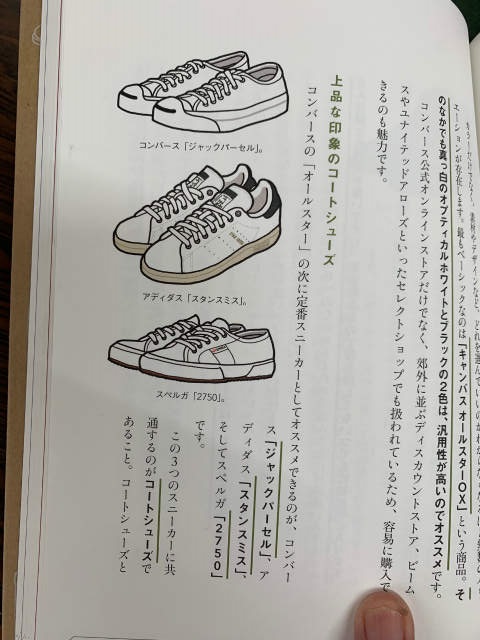 エーションが存在します。最もベーシックなのは「キャンバス オールスターOX」という商品。そ
のなかでも真っ白のオプティカルホワイトとブラックの2色は、汎用性が高いのでオススメです。
コンバース公式オンラインストアだけでなく、郊外に並ぶディスカウントストア、ビーム
スやユナイテッドアローズといったセレクトショップでも扱われているため、容易に購入で
きるのも魅力です。
上品な印象のコートシューズ
コンバースの「オールスター」の次に定番スニーカーとしてオススメできるのが、コンバー
ス「ジャックパーセル」、ア
ディダス「スタンスミス」、
そしてスペルガ「2750」
です。
この3つのスニーカーに共
通するのがコートシューズで
あること。コートシューズと
コンバース「ジャックパーセル」。
アディダス「スタンスミス」。
スペルガ「2750」。